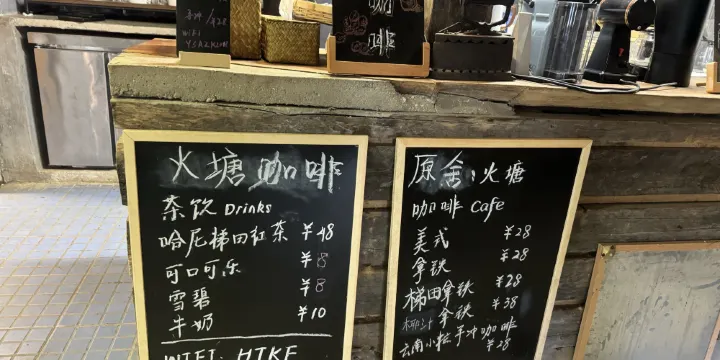 咖啡
火塘咖啡
茶饮 Drinks
哈尼梯田红茶 ¥48
可口可乐 ¥8
雪碧 ¥8
牛奶 ¥10
WIFI: HIKE
原舍·火塘
咖啡 Cafe
美式 ¥28
拿铁 ¥28
梯田拿铁 ¥28
拿铁 ¥38
云南小粒手冲咖啡
¥28